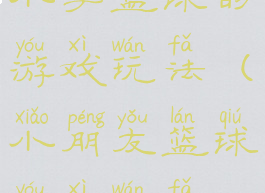 小朋友篮球的
yóu xì wán fǎ
游戏玩法（
xiǎo péng yǒu lán qiú
小朋友篮球
yóu xì wán fǎ